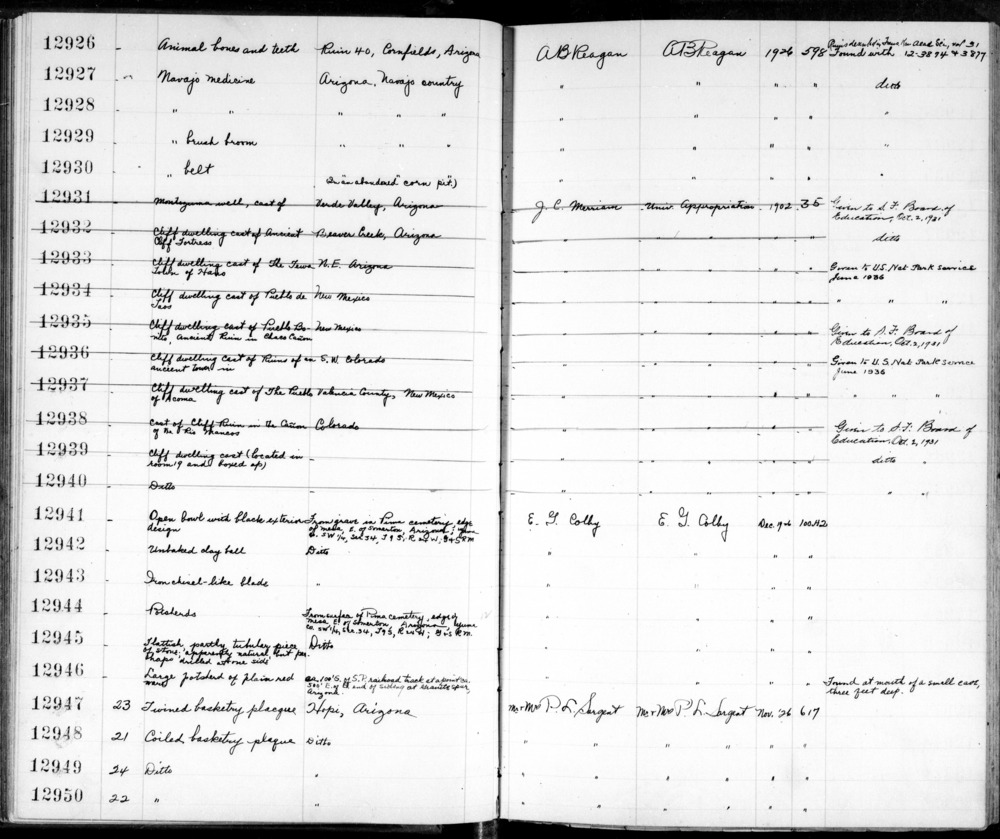 12926 - Animal bones and teeth Ruin 40, Cornfields, Arizona A B Reagan A B Reagan 1926 598 Found with 12-3894 + 3877
12927 - Navajo medicine Arizona, Navajo country " " " " ditto
12928 - " " " " " " " " " "
12929 - " brush broom " " " " " " " "
12930 - " belt (In "an abandoned" corn pit.) " " " " "
12931 - Montezuma well, cast of Verde Valley, Arizona J. C. Merriam Univ. Appropriation 1902 35 Given to S. F. Board of
Education, Oct. 2, 1931
12932 - Cliff dwelling cast of Ancient Beaver Creek, Arizona " " " " " ditto
Cliff Fortress
12933 - Cliff dwelling cast of The Tewa N. E. Arizona " " " " " Given to U.S. Nat Park Service
Town of Hano June 1936
12934 - Cliff dwelling cast of Pueblo de New Mexico " " " " " " " "
Taos
12935 - Cliff dwelling cast of Pueblo Bo- New Mexico " " " " " Given to S. F. Board of
nito, Ancient Ruin in Chaco Cañon Education, Oct. 2, 1931
12936 - Cliff dwelling cast of Ruins of an S. W. Colorado " " " " " Given to U.S. Nat Park Service
ancient tower in June 1936
12937 - Cliff dwelling cast of The Pueblo Valencia County, New Mexico " " " " " " " "
of Acoma
12938 - Cast of Cliff Ruin in the Cañon Colorado " " " " " Given to S. F. Board of
of the Rio Mancos Education, Oct. 2, 1931
12939 - Cliff dwelling cast (located in - " " " " " ditto "
room 19 and boxed up)
12940 - Ditto - " " " " " " "
12941 - Open bowl with black exterior From grave in Pima cemetery, edge E. G. Colby E. G. Colby Dec. 1926 100.H2
design of mesa, E. of Somerton, Arizona; Yuma
Co. SW 1/4, Sec 34, T 9 S, R 24 W; G & S R M
12942 - Unbaked clay ball Ditto " " " " "
12943 - Iron chisel-like blade " " " " "
12944 - Potsherds From surface of Pima cemetery, edge of " " " "
mesa E. of Somerton, Arizona, Yuma
Co SW 1/4, Sec. 34, T 9 S, R 24 W; G & S R. M.
12945 - Flattish partly tubular piece Ditto " " " "
of stone, apparently natural, but per-
haps drilled at one side
12946 - Large potsherd of plain red ca. 100' S. of S.P. railroad track at a point ca. " " " " Found at mouth of a small cave,
ware 500' E. of E end of siding at spur, three feet deep.
Arizona.
12947 23 Twined basketry placque Hopi, Arizona Mr + Mrs P. L. Sargent Mr + Mrs P. L. Sargent Nov. '26 617
12948 21 Coiled basketry plaque Ditto " " " "
12949 24 Ditto " " " " "
12950 22 " " " " " "